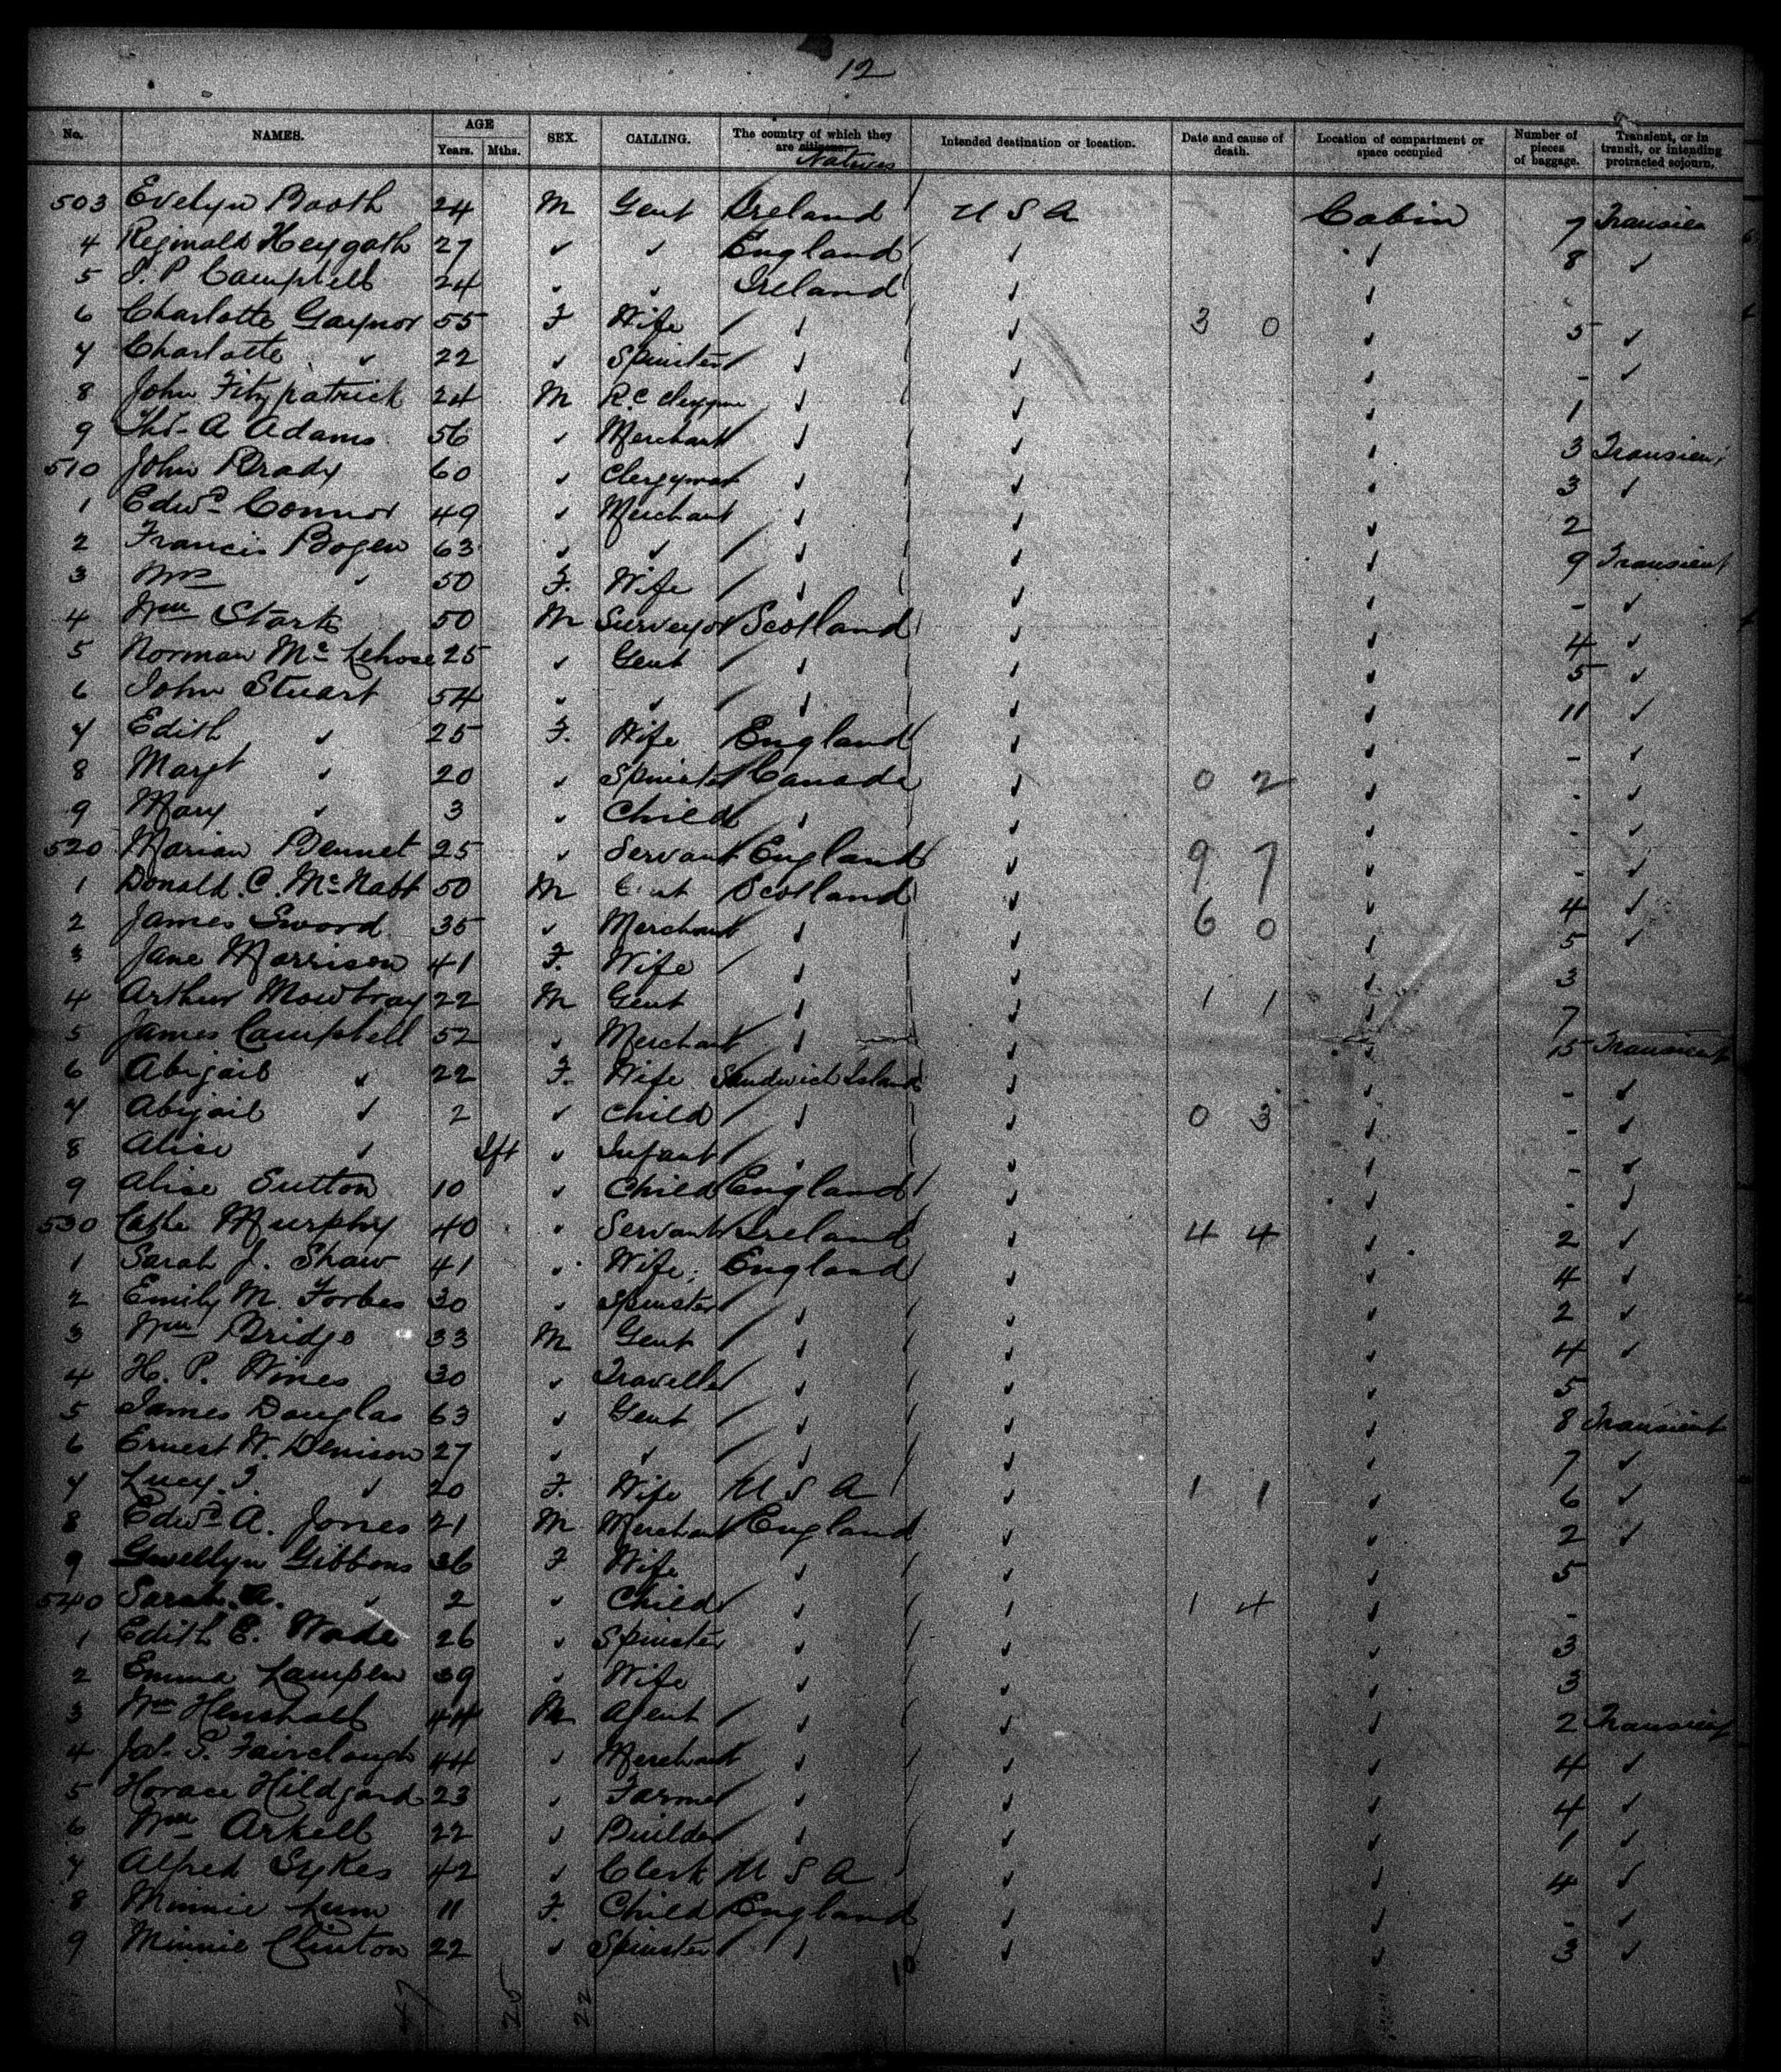 12
No. NAMES. AGE Years. Mths. SEX. CALLING. The country of which they are citizens. Natives Intended destination or location. Date and cause of death. Location of compartment or space occupied Number of pieces of baggage. Transient, or in transit, or intending protracted sojourn.
503 Evelyn Booth 24 M Gent Ireland U S A Cabin 7 Transien
4 Reginald Heygath 27 " " England " " 8 "
5 J. P Campbell 24 " " Ireland " "
6 Charlotte Gaynor 55 F Wife " " 3 0 " 5 "
7 Charlotte " 22 " Spinster " " " - "
8 John Fitzpatrick 24 M R.C. Clergyme " " " 1
9 Thos A Adams 56 " Merchant " " " 3 Transient
510 John Brady 60 " Clergyman " " " 3 "
1 Edwd Connor 49 " Merchant " " " 2
2 Francis Bogen 63 " " " " " 9 Transient
3 Mrs " 50 F. Wife " " " - "
4 Wm Stark 50 M Surveyor Scotland " " 4 "
5 Norman Mc Lehose 25 " Gent " " " 5 "
6 John Stuart 54 " " " " " 11 "
7 Edith " 25 F. Wife England " " - "
8 Margt " 20 " Spinster Canada " 0 2 " - "
9 Mary " 3 " Child " " " - "
520 Marian Bennet 25 " Servant England " 9 7 " - "
1 Donald. C. McNabb 50 M Gent Scotland " " 4 "
2 James Sword 35 " Merchant " " 6 0 " 5 "
3 Jane Morrison 41 F. Wife " " " 3
4 Arthur Mowbray 22 M Gent " " 1 1 " 7
5 James Campbell 52 " Merchant " " " 15 Transient
6 Abigail " 22 F. Wife Sandwich Island " " - "
7 Abigail " 2 " Child " " 0 3 " - "
8 Alice " Ift " Infant " " " - "
9 Alice Sutton 10 " Child England " " - "
530 Cathe Murphy 40 " Servant Ireland " 4 4 " 2 "
1 Sarah J. Shaw 41 " Wife England " " 4 "
2 Emily M. Forbes 30 " Spinster " " " 2 "
3 Wm Bridge 33 M Gent " " " 4 "
4 H. P. Wines 30 " Traveller " " " 5
5 James Douglas 63 " Gent " " " 8 Transient
6 Ernest W. Denison 27 " " " " " 7 "
7 Lucy. I. " 20 F. Wife U S A " 1 1 " 6 "
8 Edwd A. Jones 21 M Merchant England " " 2 "
9 Gwellyn Gibbons 36 F Wife " " " 5
540 Sarah. A. " 2 " Child " " 1 4 " -
1 Edith E. Wade 26 " Spinster " " " 3
2 Emma Lampen 39 " Wife " " " 3
3 Wm Henshall 44 M Agent " " " 2 Transient
4 Jas. S. Fairclough 44 " Merchant " " " 4 "
5 Horace Hildgard 23 " Farmer " " " 4 "
6 Wm Arkell 22 " Builder " " " 1 "
7 Alfred Sykes 42 " Clerk U S A " " 4 "
8 Minnie Lum 11 F. Child England " " - "
9 Minnie Clinton 22 " Spinster " " " 3 "
47 25 22 10